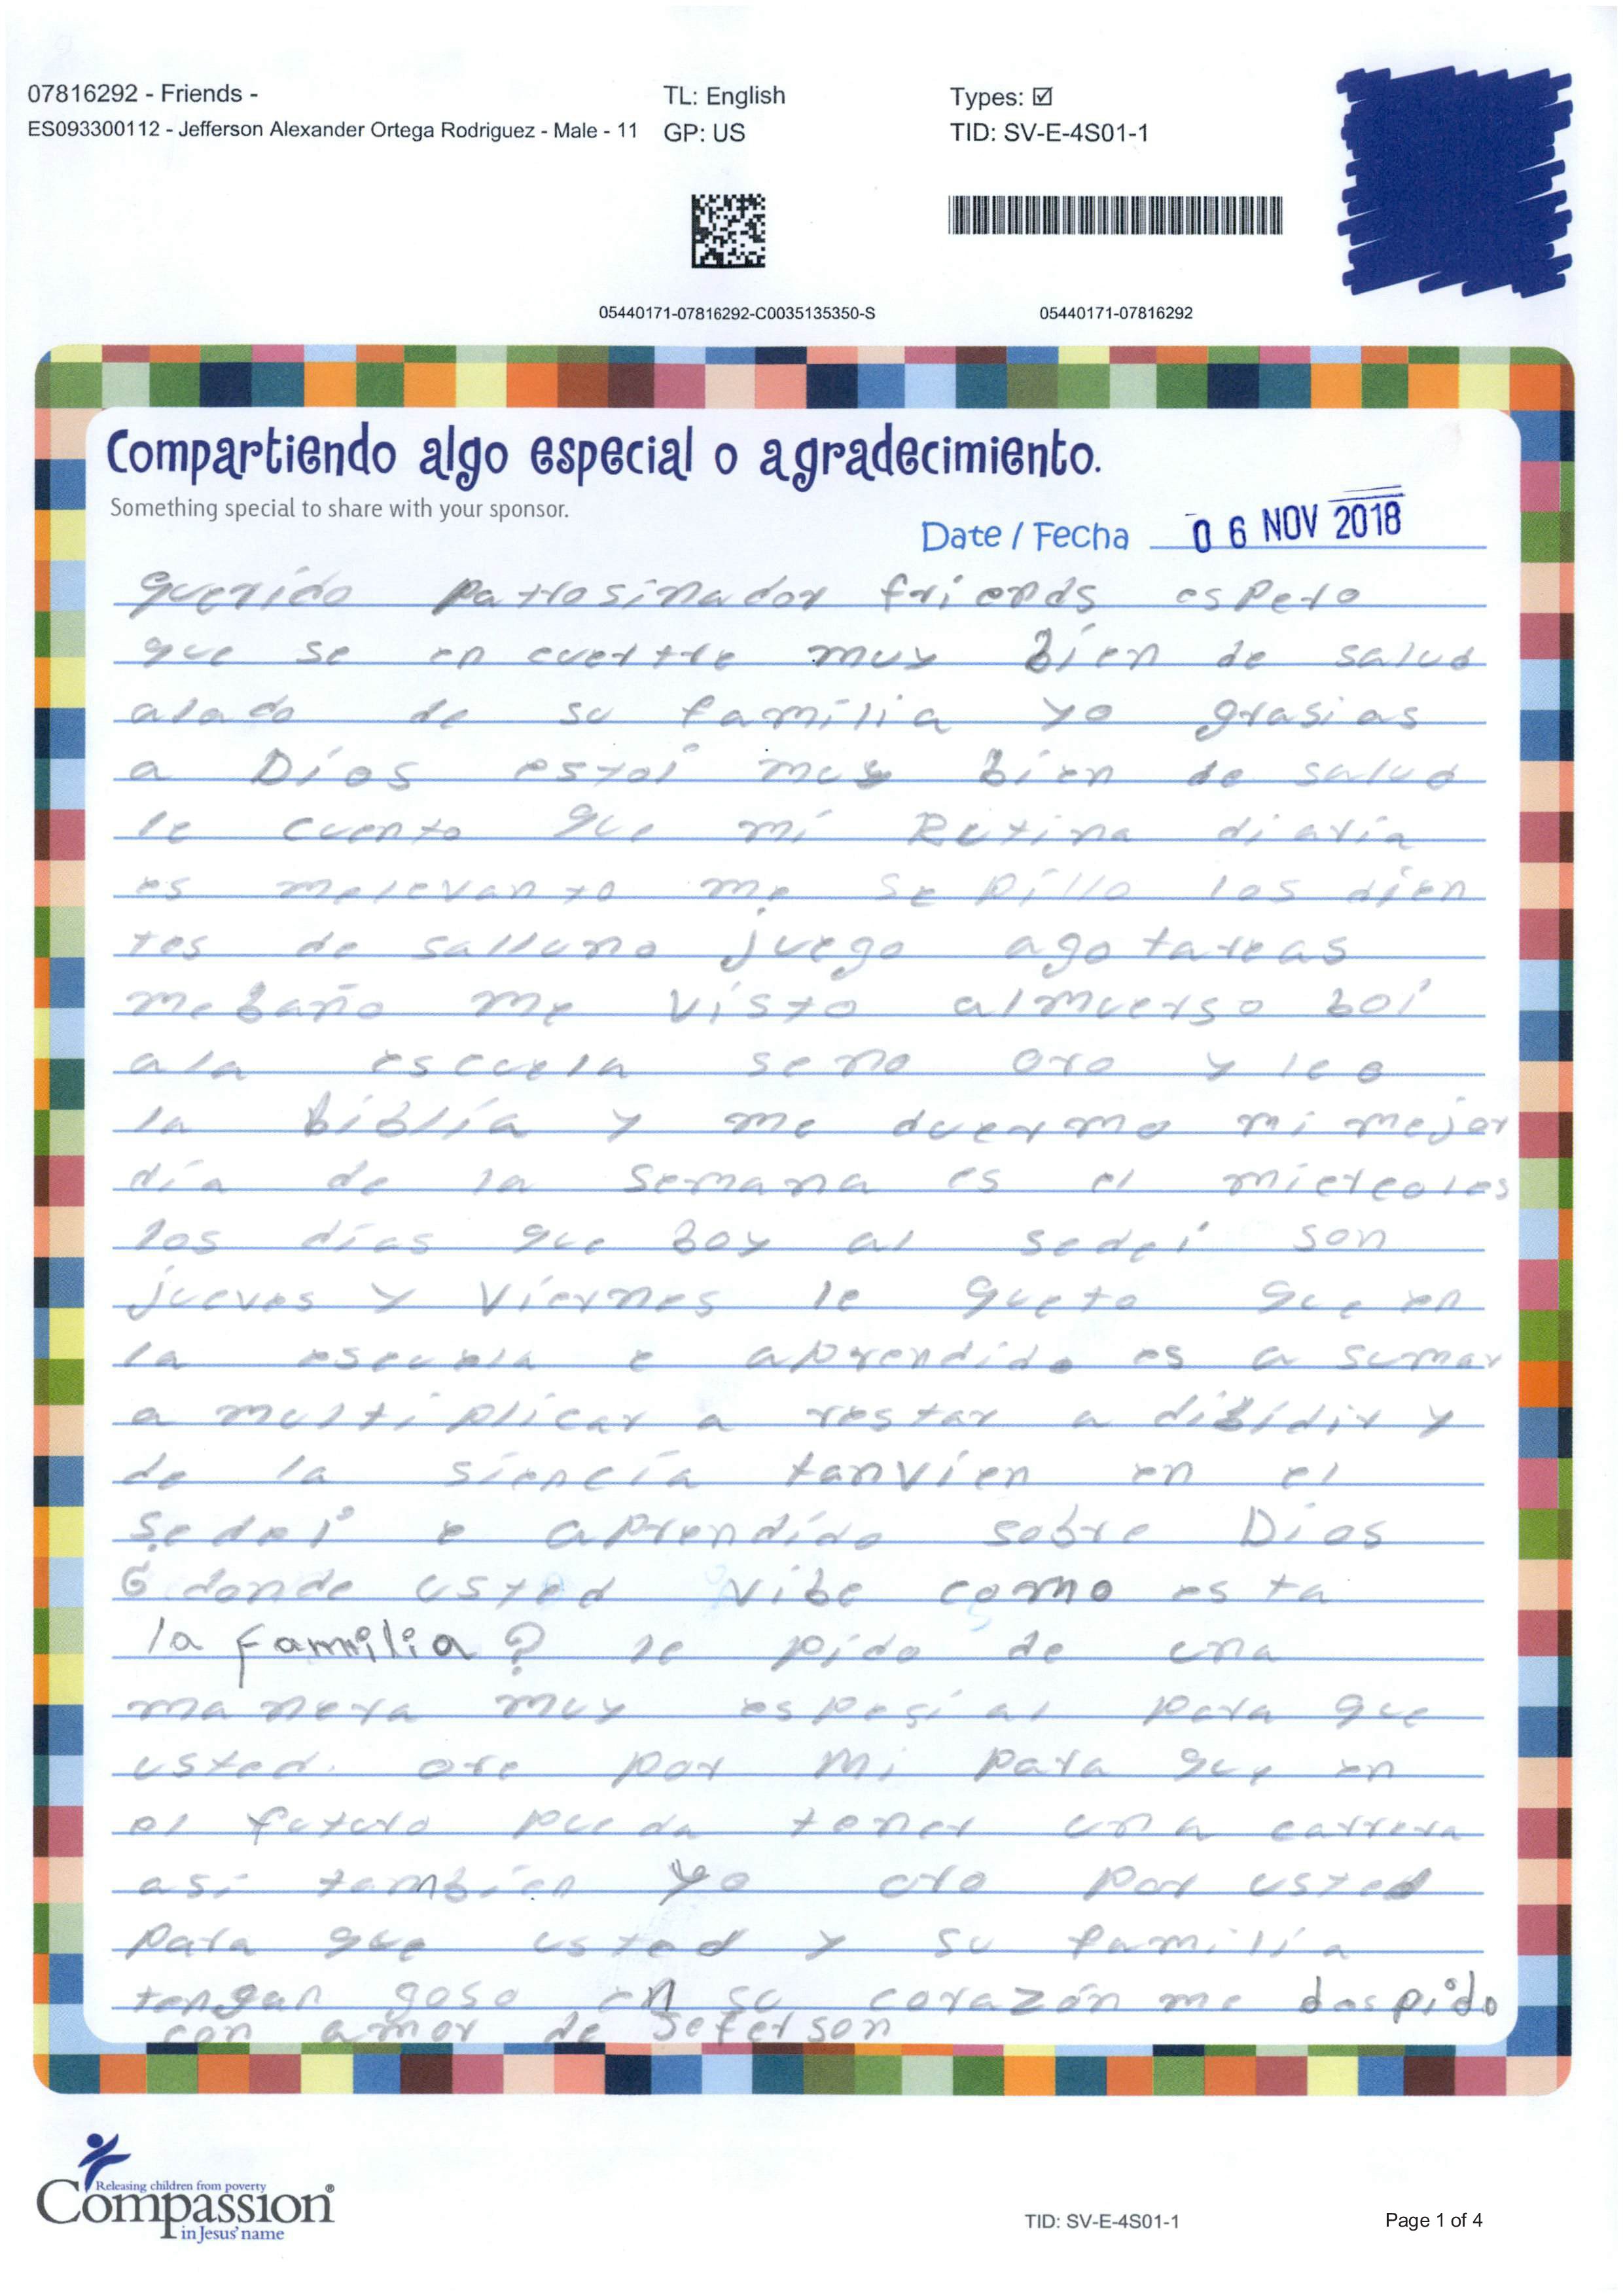 07816292 - Friends -
ES093300112 - Jefferson Alexander Ortega Rodriguez - Male - 11
TL: English
GP: US
Types: ☑
TID: SV-E-4S01-1
05440171-07816292-C0035135350-S
05440171-07816292
Compartiendo algo especial o agradecimiento.
Something special to share with your sponsor.
Date / Fecha 06 NOV 2018
querido patrosinador friends espero
que se en cuertre muy bien de salud
alado de su familia yo grasias
a Dios estoi muy bien de salud
le cuento que mi Rutina diaria
es melevanto me sepillo los dien
tes de salluno juego ago tareas
mebaño me visto almuerso boi
ala escuela seno oro y leo
la biblia y me duermo mi mejor
día de la semana es el miercoles
los días que boy al sedei son
jueves y viernes le queto que en
la escuela e aprendido es a sumar
a multiplicar a restar a dibidir y
de la siencia tanvien en el
sedei e aprendido sobre Dios
G donde usted vibe como esta
la familia? le pido de una
manera muy espesial para que
usted. ore por mi para que en
el futuro pueda tener una carrera
asi tambien yo oro por usted
para que usted y su familia
tengan goso en su corazón me despido
con amor de Jeferson
Releasing children from poverty
Compassion®
in Jesus' name
TID: SV-E-4S01-1
Page 1 of 4